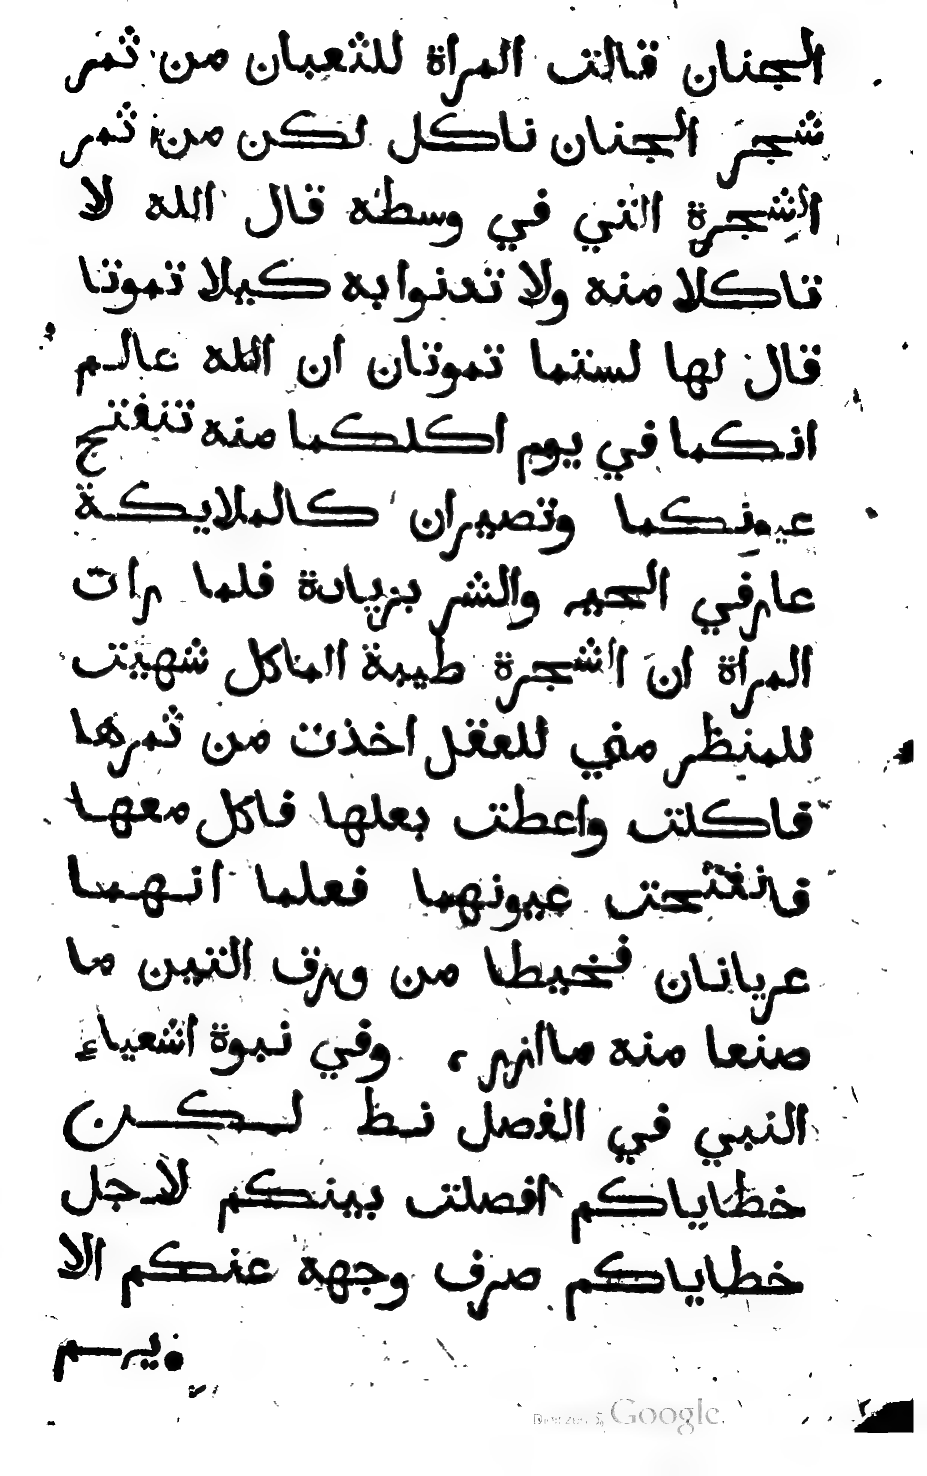 الجنان قالت المراة للثعبان من ثمر
شجر الجنان ناكل لكن من ثمر
الشجرة التي في وسطه قال الله لا
تاكلا منه ولا تدنوا به كيلا تموتا
قال لها لستما تموتان ان الله عالم
انكما في يوم اكلكما منه تنفتح
عيونكما وتصيران كالملايكة
عارفي الحير والشر بزيادة فلما رات
المراة ان الشجرة طيبة الماكل شهيت
للمنظر مني للعقل اخذت من ثمرها
فاكلت واعطت بعلها فاكل معها
فانفتحت عيونهما فعلما انهما
عريانان فخيطا من ورق التين ما
صنعا منه ماازر، وفي نبوة اشعياء
النبي في الفصل نط لكن
خطاياكم افصلت بينكم لاجل
خطاياكم صرف وجهة عنكم الا
يرسم
Google